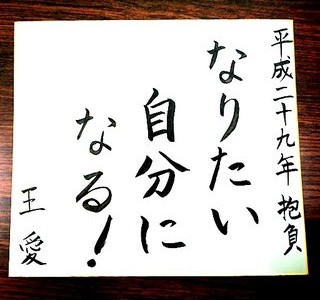 平成二十九年 抱負
なりたい
自分に
なる!
王 愛